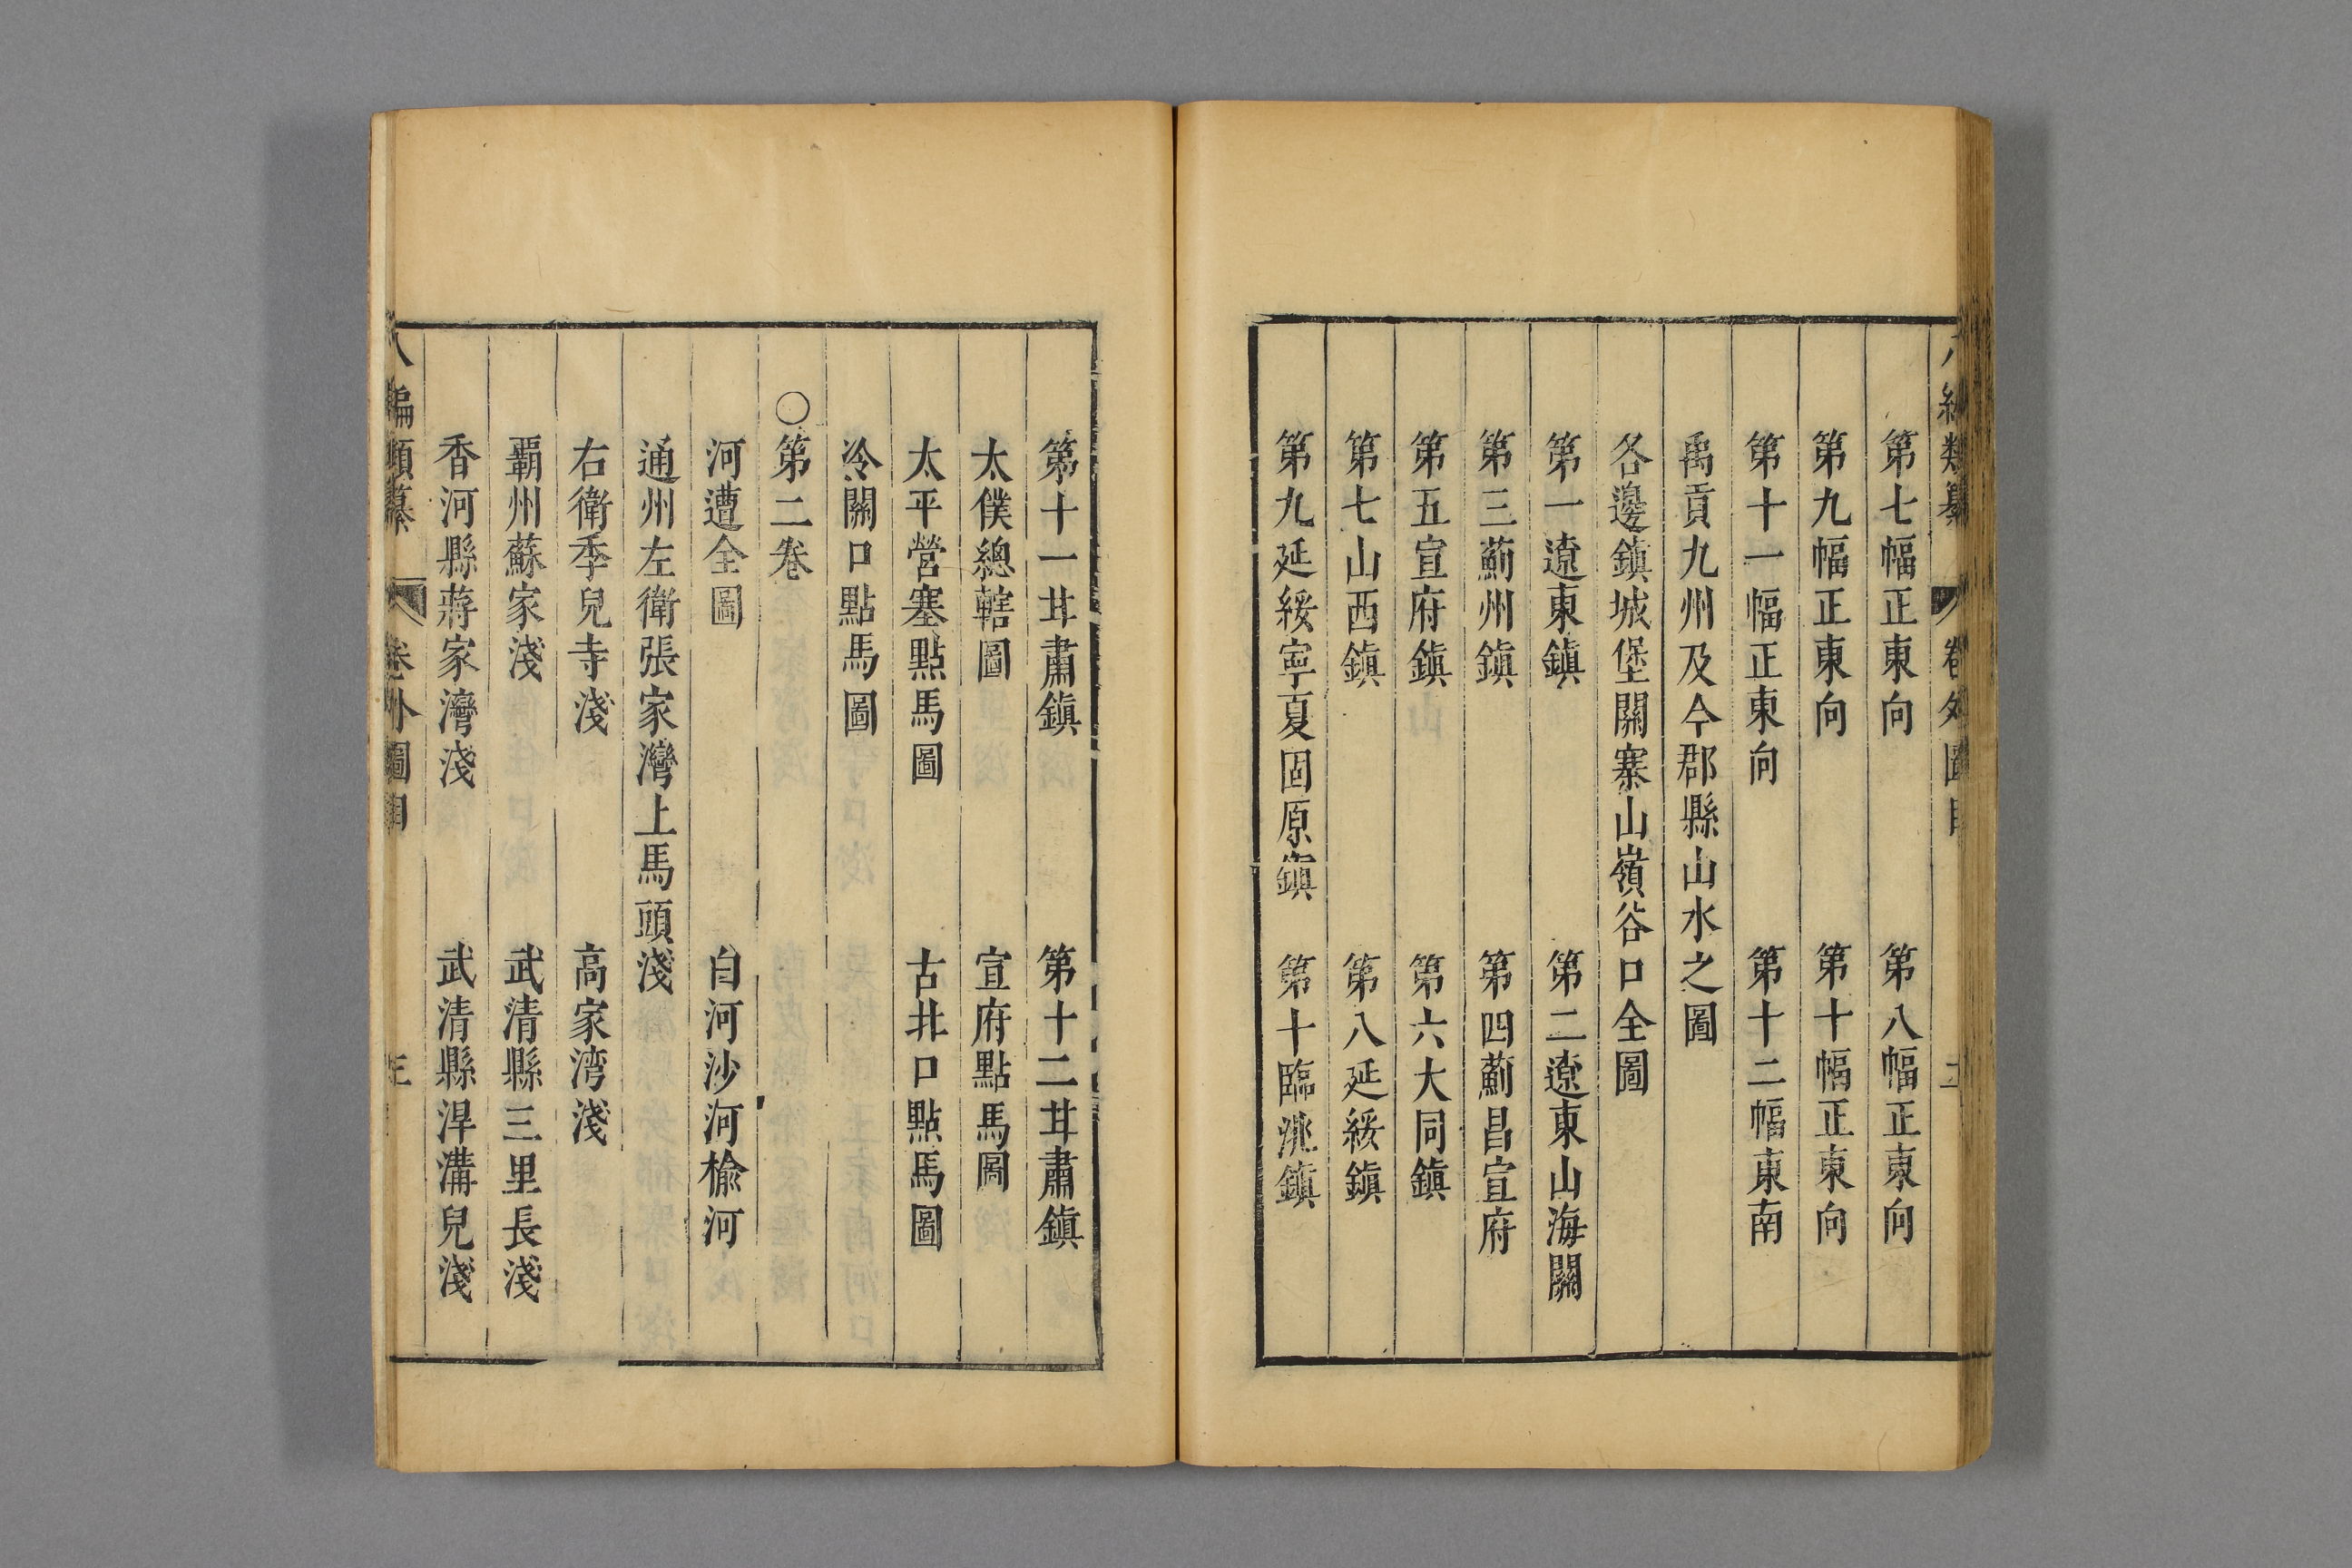 八編類纂 卷外圖目 二
第七幅正東向 第八幅正東向
第九幅正東向 第十幅正東向
第十一幅正東向 第十二幅東南
禹貢九州及今郡縣山水之圖
各邊鎮城堡關寨山嶺谷口全圖
第一遼東鎮 第二遼東山海關
第三薊州鎮 第四薊昌宣府
第五宣府鎮 第六大同鎮
第七山西鎮 第八延綏鎮
第九延綏寧夏固原鎮 第十臨洮鎮
第十一甘肅鎮 第十二甘肅鎮
太僕總轄圖 宣府點馬圖
太平營塞點馬圖 古北口點馬圖
冷關口點馬圖
○第二卷
河遭全圖 白河沙河榆河
通州左衛張家灣上馬頭淺
右衛季兒寺淺 高家湾淺
霸州蘇家淺 武清縣三里長淺
香河縣蔣家灣淺 武清縣浑溝兒淺
八編類纂 卷外圖目 三